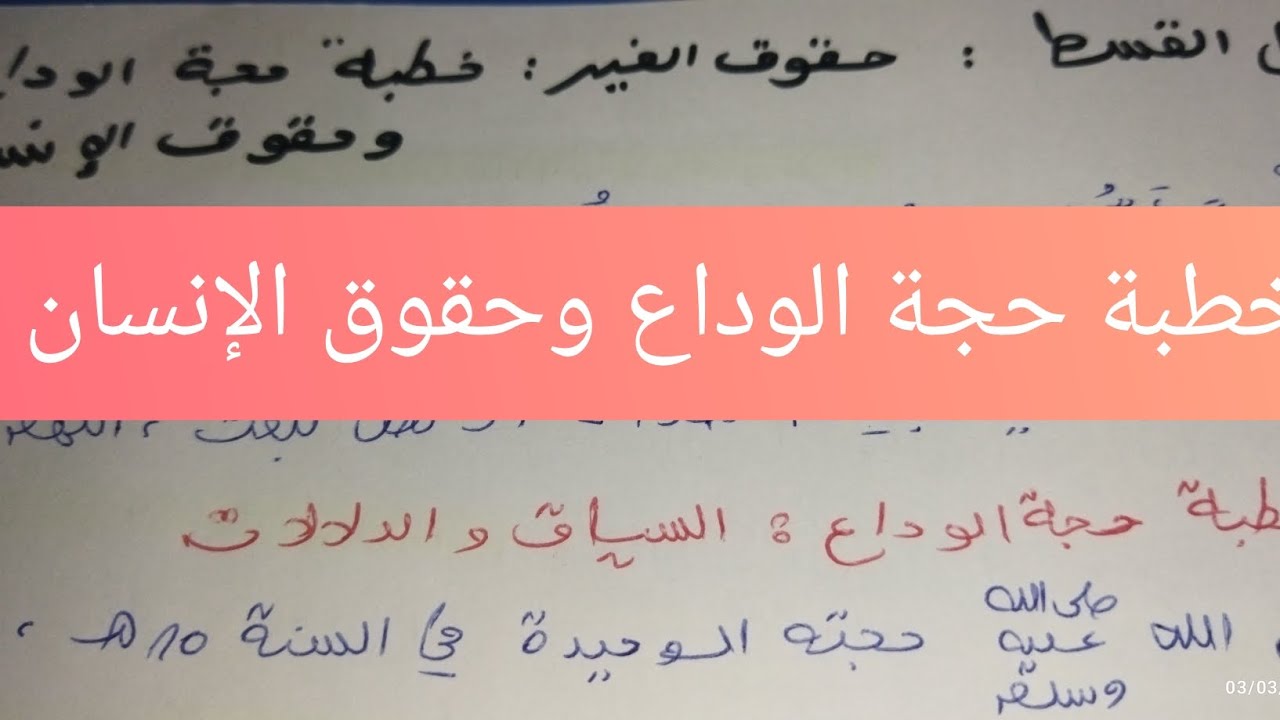 القسط : حقوق الغير : خطبة حجة الودا
وحقوق الإنس
خطبة حجة الوداع وحقوق الإنسان
طبة حجة الوداع : السياق والدلالات
الله صلى الله عليه وسلم حجته الوحيدة في السنة 10هـ ،
03/03